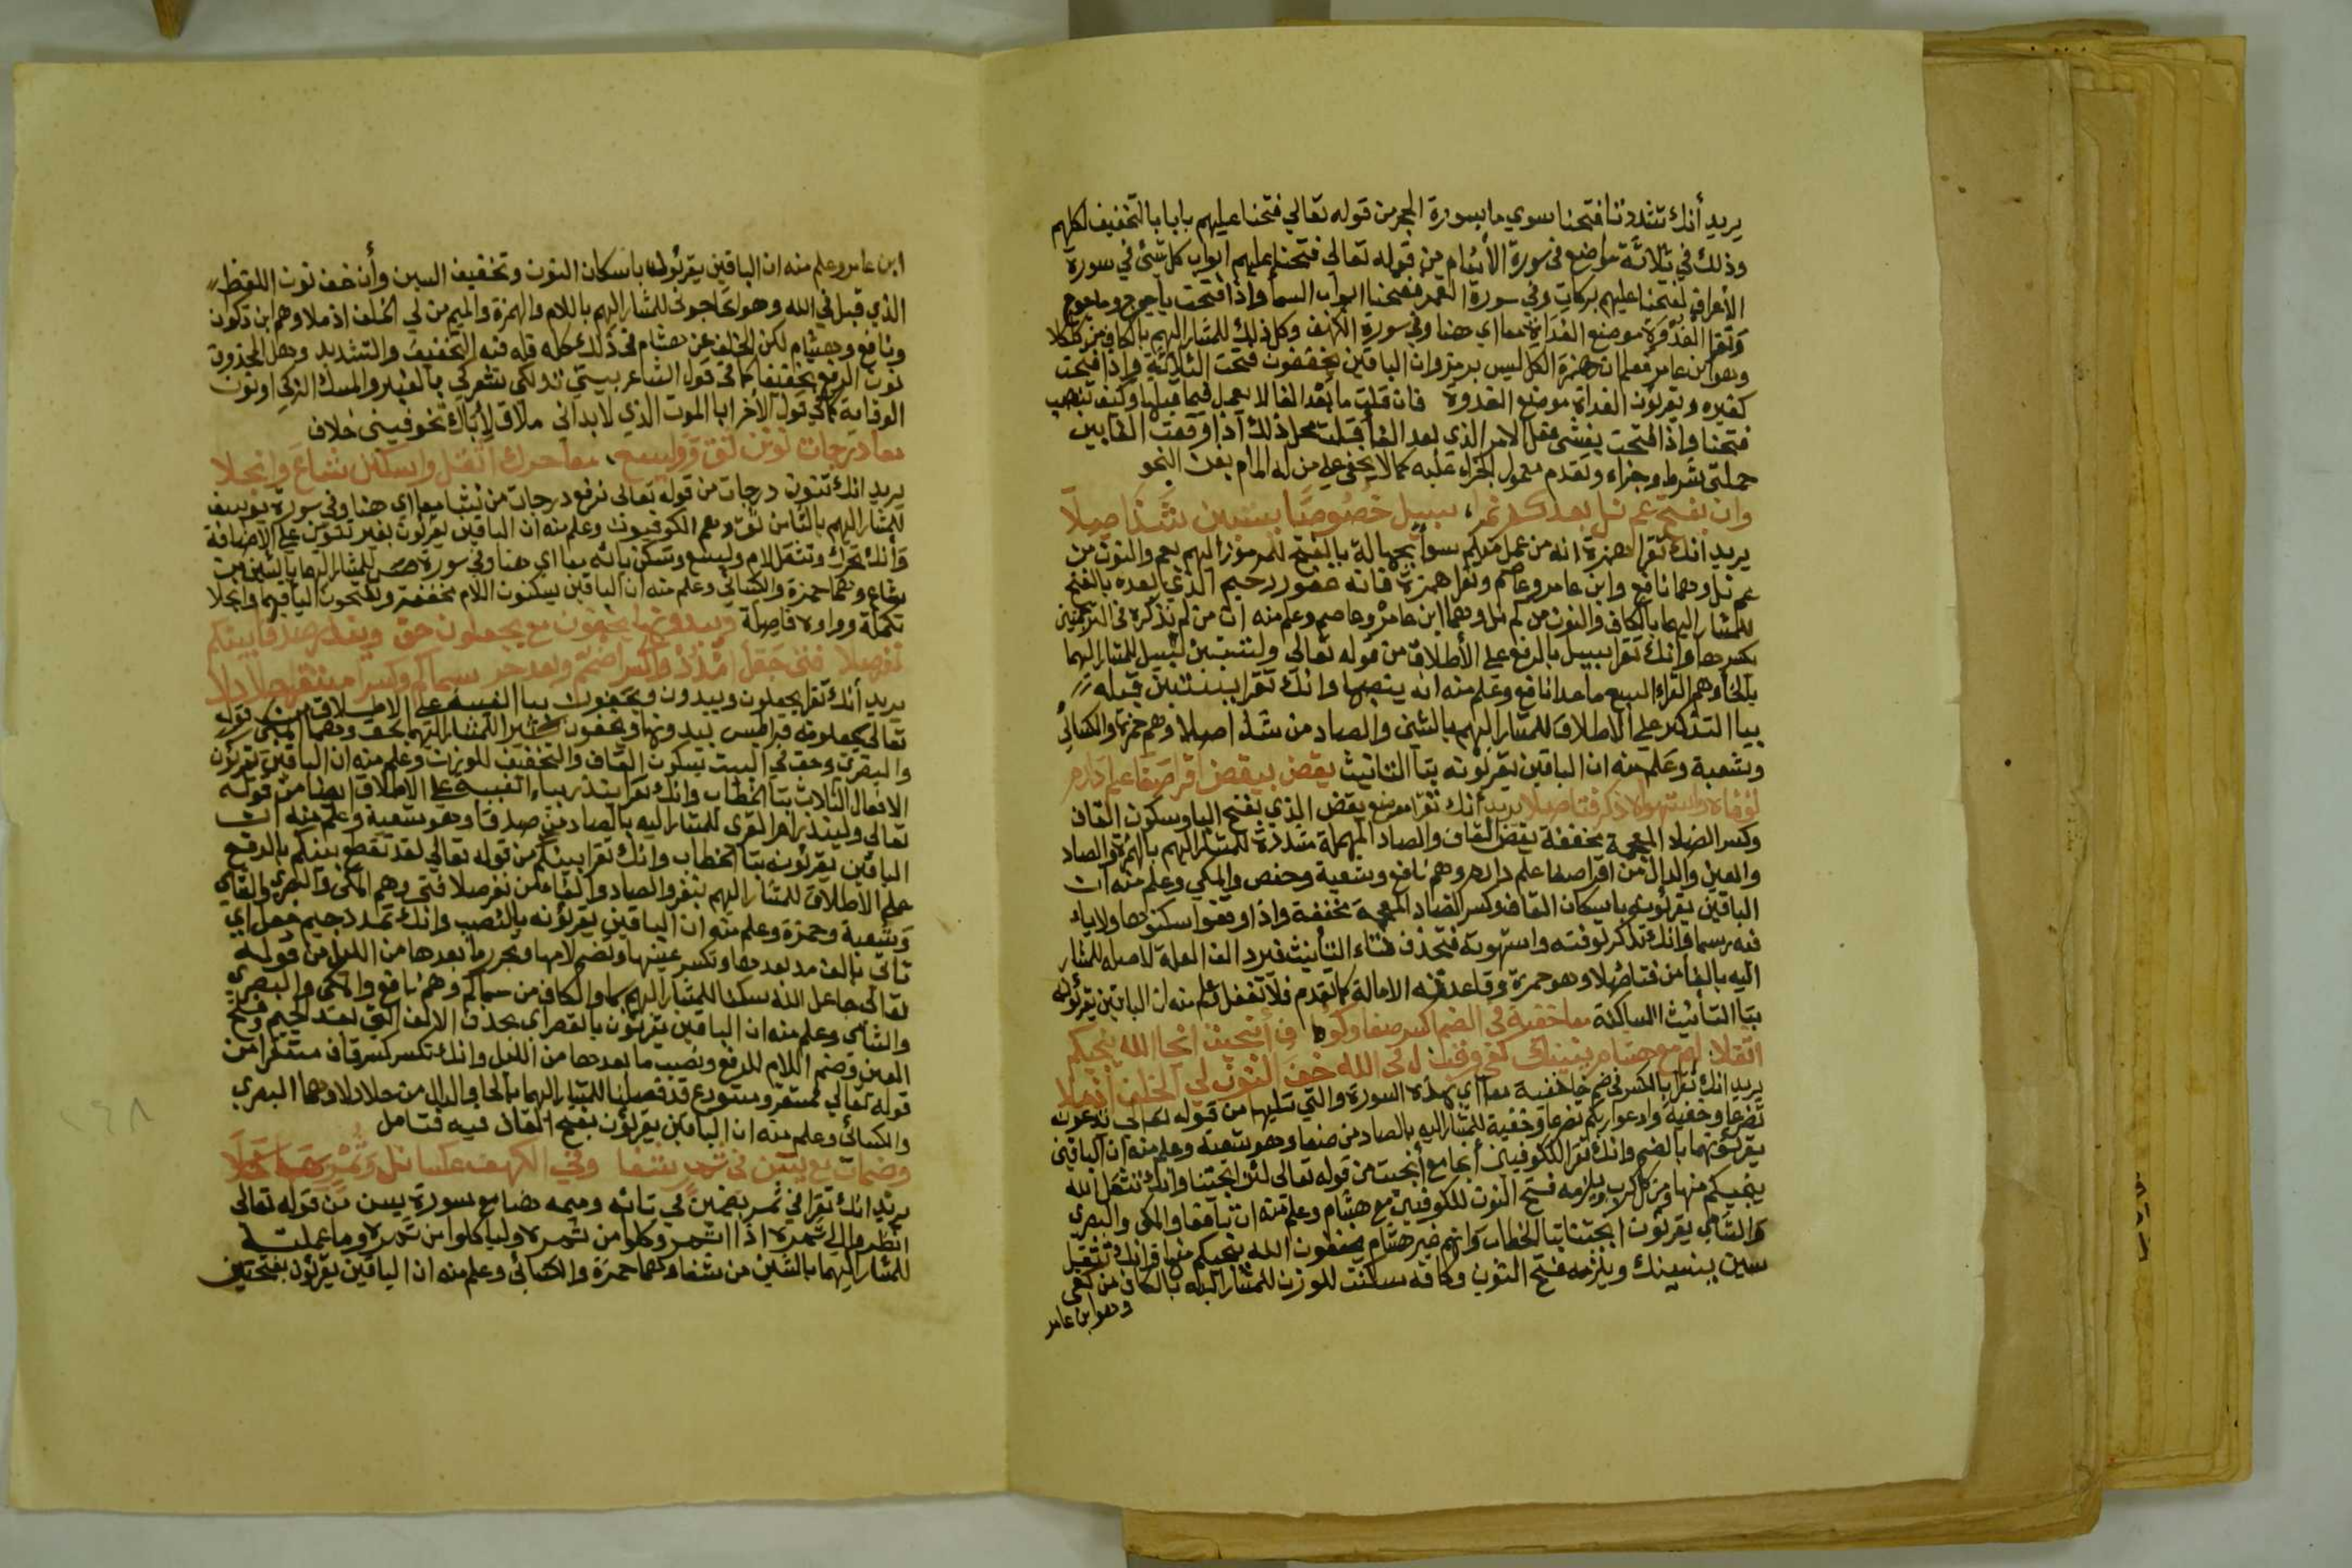 يريد أنك تشدد تا فتحنا سوي ما بسورة الحجر من قوله تعالي فتحنا عليهم بابا بالتخفيف لكلهم
وذلك في ثلاثة مواضع في سورة الأنعام من قوله تعالي فتحنا عليهم ابواب كل شئ في سورة
الأعراف لفتحنا عليهم بركات وفي سورة القمر ففتحنا ابواب السما واذا فتحت ياجوج وماجوج
وتقرا الغدوة موضع الغداة معا اي هنا وفي سورة الكهف وكل ذلك للمشار اليهم بالكاف من كلا
وهو ابن عامر فعلم ان همزة الكل ليس برمز وان الباقين يخففون فتحت الثلاثة واذا فتحت
كغيره ويقرئون الغداة موضع الغدوة فان قلت ما بعد الفا لا يعمل فيما قبلها وكيف تنصب
فتحنا واذا فتحت بفشي فعل الامر الذي بعد الفا قلت محل ذلك اذا وقعت الفا بين
جملتي شرط وجزاء وتقدم معمول الجزاء عليه كما لا يخفي علي من له المام بفن النحو
وان بفتح عم نل بعد كم نما، سبيل خصوصا يستبين شذا صلا
يريد انك تقرا همزة انه من عمل منكم سوأ بجهالة بالفتح للمرموز اليهم بعم والنون من
عم نل وهما نافع وابن عامر وعاصم وتقرا همزة فانه غفور رحيم الذي بعده بالفتح
للمشار اليهما بالكاف والنون من كم نل وهما ابن عامر وعاصم وعلم منه ان من لم نذكره في الترجمتين
يكسرها وانك تقرا سبيل بالرفع علي الأطلاق من قوله تعالي ولتستبين سبيل للمشار اليهما
بالخا وهم القراء السبع ما عدا نافع وعلم منه انه ينصبها وانك تقرا يستبين قبله
بيا التذكير علي الاطلاق للمشار اليهم بالشين والصاد من شذا صلا وهم حمزة والكسائي
وشعبة وعلم منه ان الباقين يقرئونه بتا التانيث يقض بيقض اقر صفا علم داره
توفاه واستهواه ذكر فتا صلا يريد أنك تقرا موضع يقض الذي بفتح اليا وسكون القاف
وكسر الضاد المعجمة مخففة يقص القاف والصاد المهملة مشددة للمشار اليهم بالهمزة والصاد
والعين والدال من اقر صفا علم داره وهم نافع وشعبة وحفص والمكي وعلم منه ان
الباقين يقرئونه باسكان القاف وكسر الضاد المعجمة مخففة واذا وقفوا سكنوها ولا ياء
فيه رسما وانك تذكر توفته واستهوته فتحذف تاء التأنيث فيرد الف العلة لاصله للمشار
اليه بالفا من فتا صلا وهو حمزة وقاعدته الامالة كما تقدم فلا تغفل وعلم منه ان الباقين يقرئونه
بتا التأنيث الساكنة معا خفية في الضم اكسر صفا وكوفي أنجيت انجا الله ينجيكم
اثقلا لهم مع هشام ينسينك كفي وقبل في الله خف النون لي الخلف اذ ملا
يريد انك تقرا بالكسر في ضم خا خفية معا اي بهذه السورة والتي تليها من قوله تعالي تدعونه
تضرعا وخفية وادعوا ربكم تضرعا وخفية للمشار اليه بالصاد من صفا وهو شعبة وعلم منه ان الباقين
يقرئونهما بالضم وانك تقرا للكوفيين أنجا مع أنجيت من قوله تعالي لئن انجيتنا وانك تثقل الله
ينجيكم منها ومن كل كرب ويلزمه فتح النون للكوفيين مع هشام وعلم منه ان نافعا والمكي والبصري
والشامي يقرئون انجيتنا بتا الخطاب وانهم غير هشام يخففون الله ينجيكم منها وانك تثقيل
سين ينسينك ويلزمه فتح النون وكافه سكنت للوزن للمشار اليه بالكاف من كفي
وهو ابن عامر
ابن عامر وعلم منه ان الباقين يقرئونه باسكان النون وتخفيف السين وأن خف نون اللفظ
الذي قبل في الله وهو اتحاجوني للمشار اليهم باللام والهمزة والميم من لي الخلف اذ ملا وهم ابن ذكوان
ونافع وهشام لكن الخلف عن هشام في ذلك كله فله فيه التخفيف والتشديد وهل المحذوف
نون الرفع تخفيفا كما في قول الشاعر بيتي تدلكي شعركي بالعنبر والمسك الذكي او نون
الوقاية كما في قول الأخر ابا الموت الذي لا بد اني ملاق لا أباك تخوفيني خلاف
معا درجات نون ثق وواليسع، معا حرك اثقل واسكنن شاع وانجلا
يريد انك تنون درجات من قوله تعالي نرفع درجات من نشا معا اي هنا وفي سورة يوسف
للمشار اليهم بالثا من ثق وهم الكوفيون وعلم منه ان الباقين يقرئون بغير تنوين علي الاضافة
وأنك تحرك وتثقل لام وليسع وتسكن يائه معا اي هنا وفي سورة ص للمشار اليهما بالشين من
شاع وهما حمزة والكسائي وعلم منه ان الباقين يسكنون اللام مخففة ويفتحون الياء فيهما وانجلا
تكملة وواوه فاصلة ويبدونها يخفون مع يجعلون حق وينذر صدقا بينكم
نفر صلا فتي جعل امدد واكسر اضمم وبعد جر سما كم وكسر مستقر حلا دلا
يريد أنك تقرا يجعلون ويبدون ويخفون بيا الغيبة علي الاطلاق من قوله
تعالي يجعلونه قراطيس يبدونها ويخفون كثيرا للمشار اليهما بحق وهما المكي
والبصري وحق في البيت بسكون القاف والتخفيف للوزن وعلم منه ان الباقين يقرئون
الافعال الثلاث بتا الخطاب وانك تقرا ينذر بياء الغيبة علي الاطلاق ايضا من قوله
تعالي ولينذر ام القري للمشار اليه بالصاد من صدقا وهو شعبة وعلم منه ان
الباقين يقرئونه بتا الخطاب وانك تقرا بينكم من قوله تعالي لقد تقطع بينكم بالرفع
علي الاطلاق للمشار اليهم بنفر والصاد والفا من نفر صلا فتي وهم المكي والبصري والشامي
وشعبة وحمزة وعلم منه ان الباقين يقرئونه بالنصب وانك تمدد جيم جعل اي
تأتي بالف مد بعدها وتكسر عينها وتضم لامها وتجر ما بعدها من الليل من قوله
تعالي جاعل الليل سكنا للمشار اليهم بسما والكاف من سما كم وهم نافع والمكي والبصري
والشامي وعلم منه ان الباقين يقرئون بالقصر اي بحذف الالف التي بعد الجيم وفتح
العين وضم اللام للرفع ونصب ما بعدها من الليل وانك تكسر كسر قاف مستقرا من
قوله تعالي فمستقر ومستودع قد فصلنا للمشار اليهما بالحا والدال من حلا دلا وهما البصري
والمكي وعلم منه ان الباقين يقرئون بفتح القاف فيه فتامل
وضمان مع يس في ثمر شفا وفي الكهف
يريد انك تقرا في ثمر بضمين في ثائه وميمه هنا مع سورة يس من قوله تعالي
انظروا الي ثمره اذا اثمر وكلوا من ثمره ولياكلوا من ثمره وما عملته
للمشار اليهما بالشين من شفا وهما حمزة والكسائي وعلم منه ان الباقين يقرئون بفتحتين